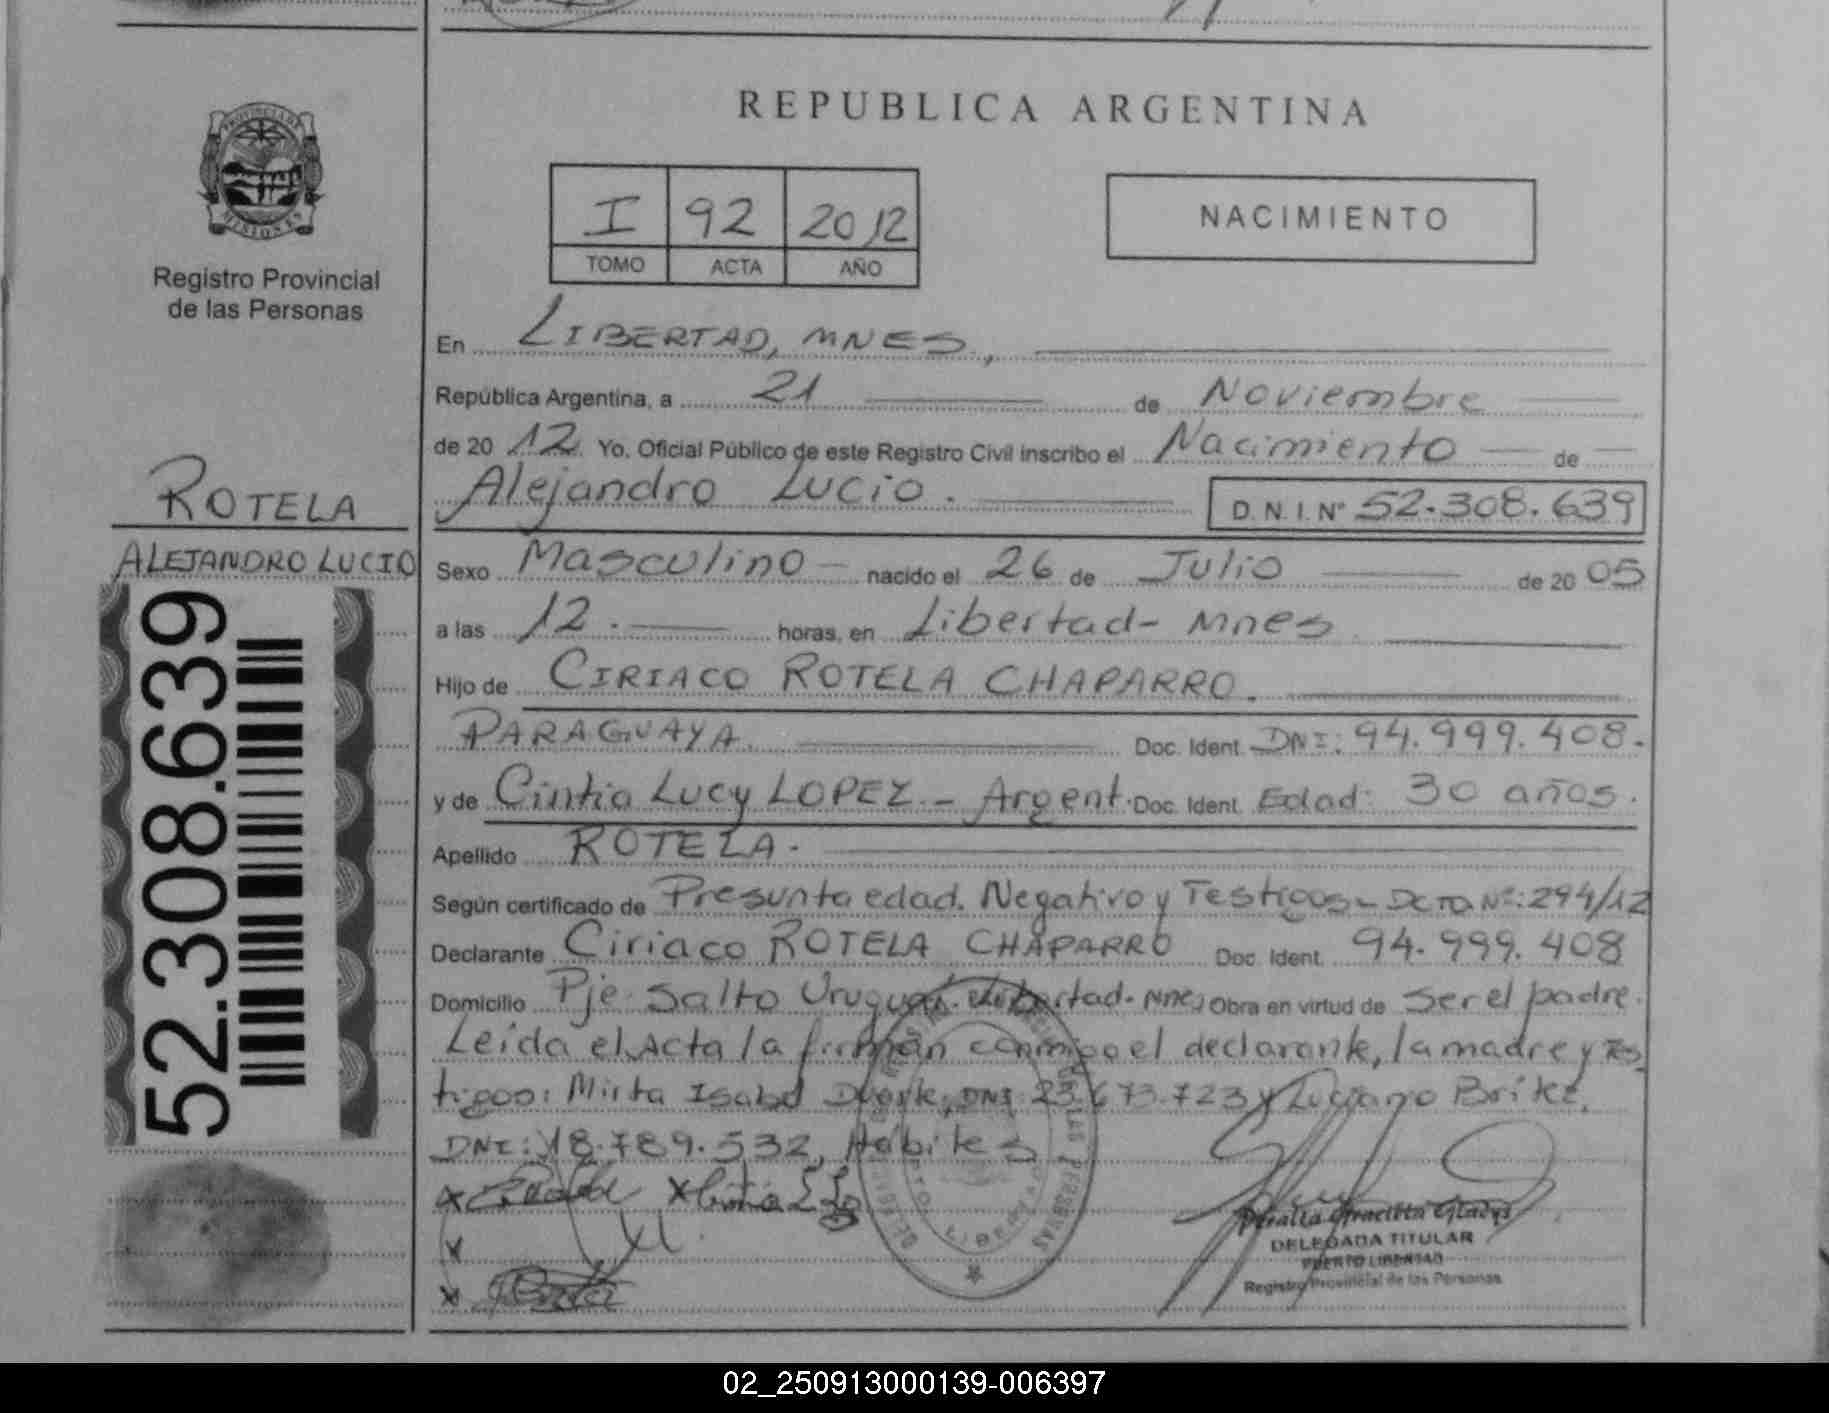 REPUBLICA ARGENTINA
PROVINCIA DE
MISIONES
Registro Provincial
de las Personas
I 92 2012
TOMO ACTA AÑO
NACIMIENTO
En LIBERTAD, MNES.,
República Argentina, a 21 de Noviembre
de 20 12. Yo, Oficial Público de este Registro Civil inscribo el Nacimiento de
Alejandro Lucio. D.N.I. Nº 52.308.639
ROTELA
ALEJANDRO LUCIO
52.308.639
Sexo Masculino nacido el 26 de Julio de 20 05
a las 12. horas, en Libertad - Mnes
Hijo de CIRIACO ROTELA CHAPARRO.
PARAGUAYA. Doc. Ident. DNI: 94.999.408.
y de Cintia Lucy LOPEZ - Argent. Doc. Ident. Edad: 30 años.
Apellido ROTELA.
Según certificado de Presunta edad. Negativo y Testigos - DCTO Nº: 294/12
Declarante Ciriaco ROTELA CHAPARRO Doc. Ident. 94.999.408
Domicilio Pje. Salto Uruguaí. Libertad. Mnes Obra en virtud de Ser el padre.
Leída el Acta la firman conmigo el declarante, la madre y Tes
tigos: Mirta Isabel Duarte, DNI: 23.673.723 y Luciano Brite,
DNI: 18.789.532, Hábiles
x x Cintia
x
x
DELEGADA TITULAR
PUERTO LIBERTAD
Registro Provincial de las Personas
02_250913000139-006397